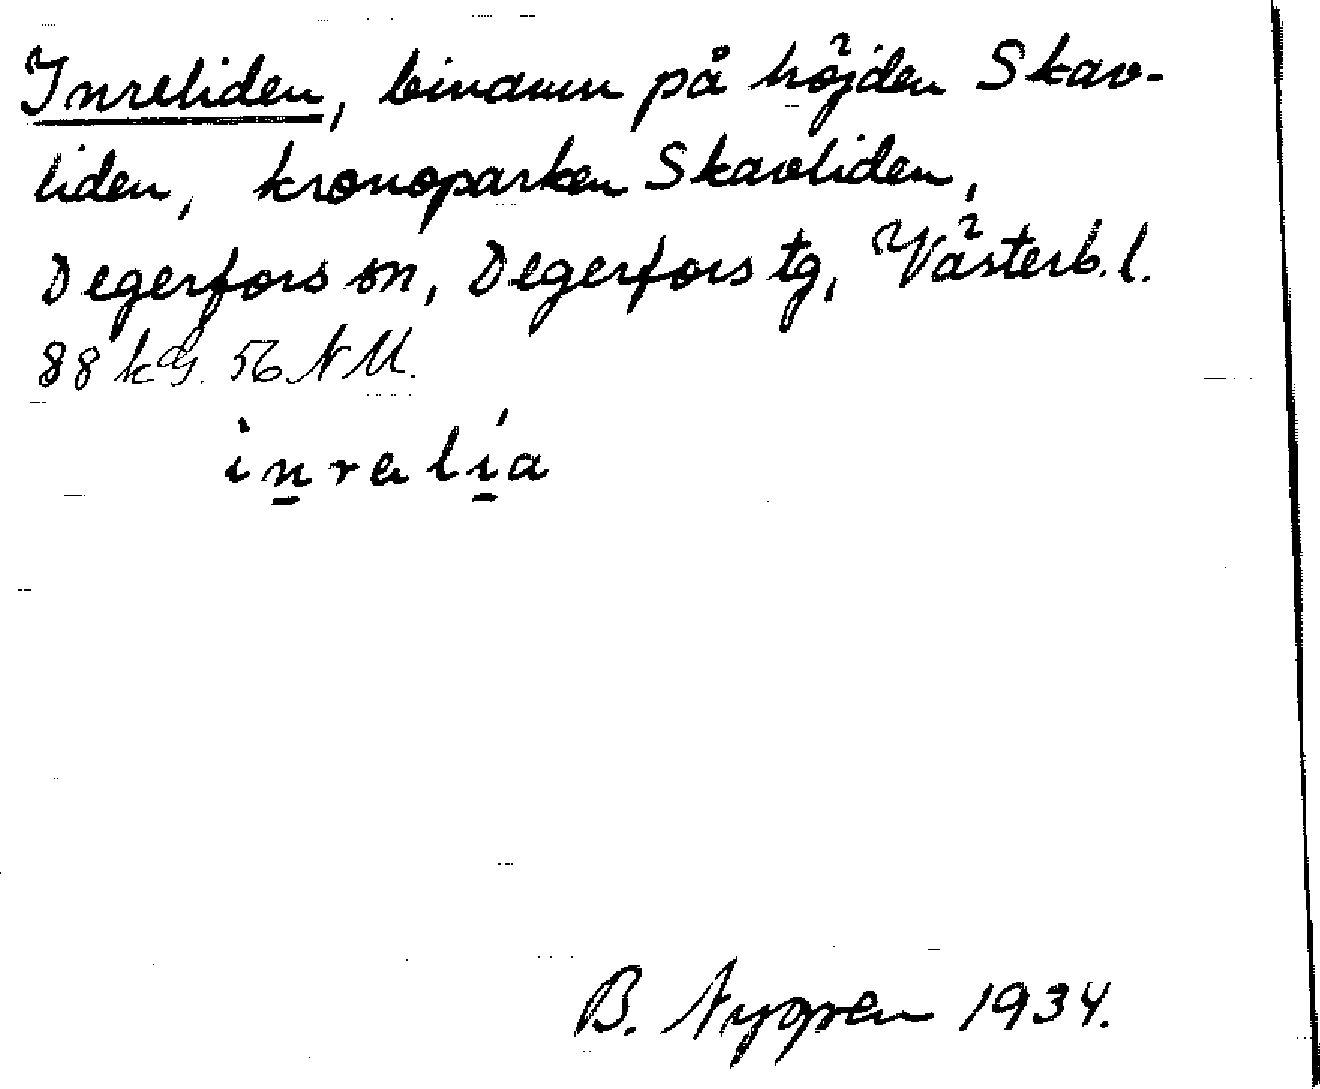 Inreliden, binamn på höjden Skav-
liden, kronoparken Skavliden,
Degerfors sn, Degerfors tg, Västerb. l.
88 kg. 56 NU.
inralía
B. Nygren 1934.